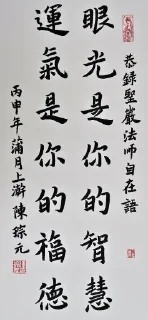 恭錄聖嚴法師自在語
眼光是你的智慧
運氣是你的福德
丙申年蒲月上澣陳琮元